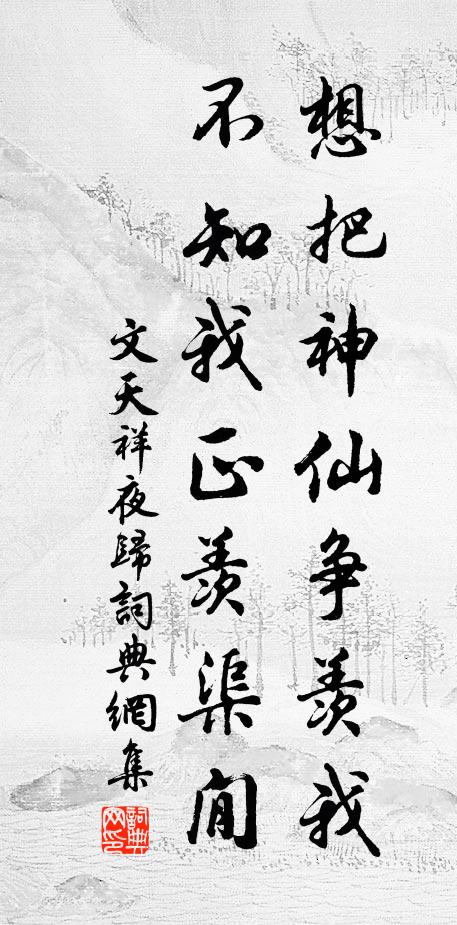 想把神仙争羨我
不知我正羨渠閒
文天祥夜歸詞典網集
詞典網印